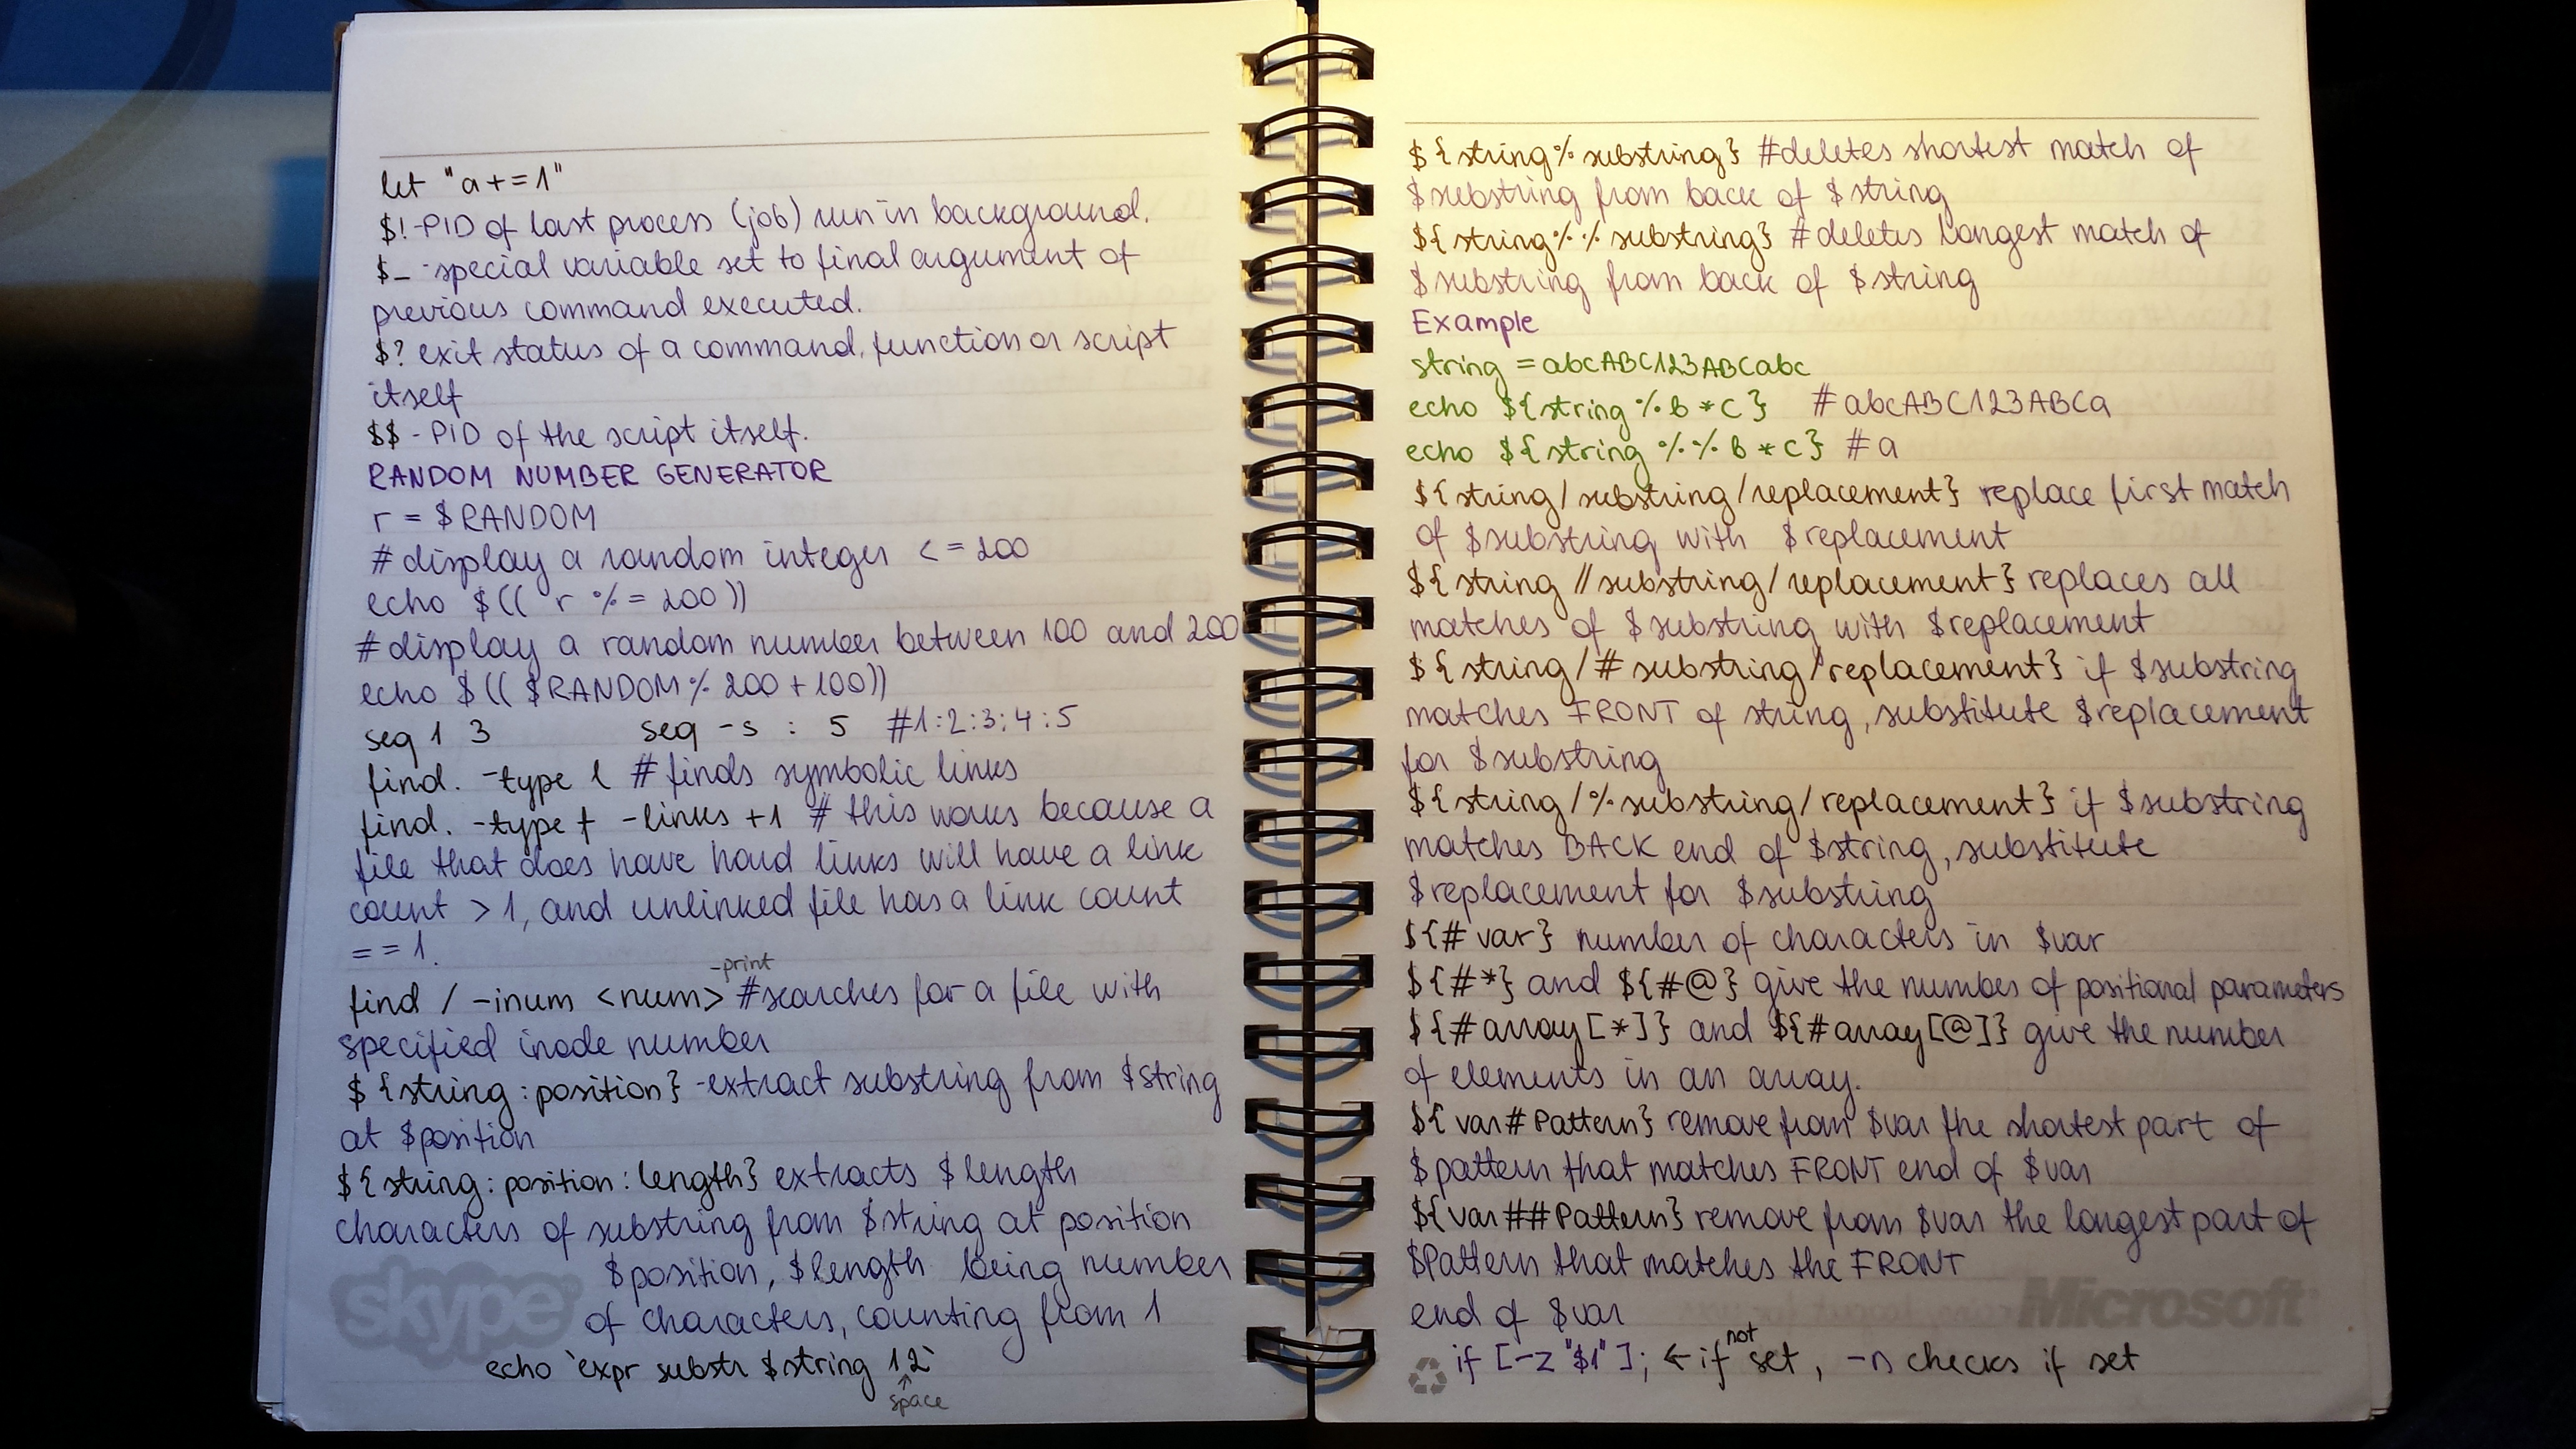 let "a+=1"
$!-PID of last process (job) run in background.
$_ -special variable set to final argument of
previous command executed.
$? exit status of a command, function or script
itself
$$ - PID of the script itself.
RANDOM NUMBER GENERATOR
r = $RANDOM
# display a random integer <= 200
echo $(( r %= 200))
# display a random number between 100 and 200
echo $(( $RANDOM % 200 + 100))
seq 1 3 seq -s : 5 #1:2:3:4:5
find. -type l # finds symbolic links
find. -type f -links +1 # this works because a
file that does have hard links will have a link
count > 1, and unlinked file has a link count
== 1.
-print
find / -inum <num> #searches for a file with
specified inode number
${string:position} -extract substring from $string
at $position
${string:position:length} extracts $length
characters of substring from $string at position
$position, $length being number
of characters, counting from 1
echo `expr substr $string 1 2`
space
skype
${string%substring} #deletes shortest match of
$substring from back of $string
${string%%substring} #deletes longest match of
$substring from back of $string
Example
string = abcABC123ABCabc
echo ${string%b*c} #abcABC123ABCa
echo ${string%%b*c} #a
${string/substring/replacement} replace first match
of $substring with $replacement
${string//substring/replacement} replaces all
matches of $substring with $replacement
${string/#substring/replacement} if $substring
matches FRONT of string, substitute $replacement
for $substring
${string/%substring/replacement} if $substring
matches BACK end of $string, substitute
$replacement for $substring
${#var} number of characters in $var
${#*} and ${#@} give the number of positional parameters
${#array[*]} and ${#array[@]} give the number
of elements in an array.
${var#Pattern} remove from $var the shortest part of
$pattern that matches FRONT end of $var
${var##Pattern} remove from $var the longest part of
$Pattern that matches the FRONT
end of $var
Microsoft
not
if [-z "$1"]; ← if set, -n checks if set